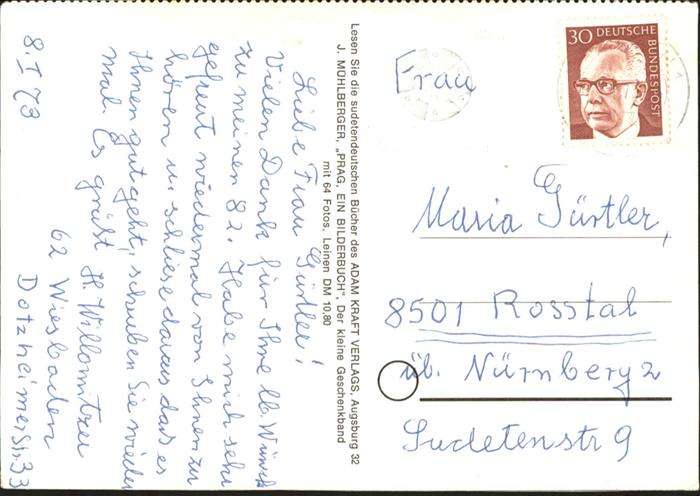 8. I 73.
Liebe Frau Gürtler!
Vielen Dank für Ihre lb. Wünsche
zu meinen 82. Habe mich sehr
gefreut wiedermal von Ihnen zu
hören u. schliese daraus das es
Ihnen gut geht, schreiben Sie wieder
mal. Es grüßt H. Willomitzer
62 Wiesbaden
Dotzheimerstr. 33
Lesen Sie die sudetendeutschen Bücher des ADAM KRAFT VERLAGS, Augsburg 32
J. MÜHLBERGER, „PRAG, EIN BILDERBUCH". Der kleine Geschenkband
mit 64 Fotos, Leinen DM 10,80
30
DEUTSCHE
BUNDESPOST
Frau
Maria Gürtler,
8501 Rosstal
üb. Nürnberg 2
Sudetenstr 9